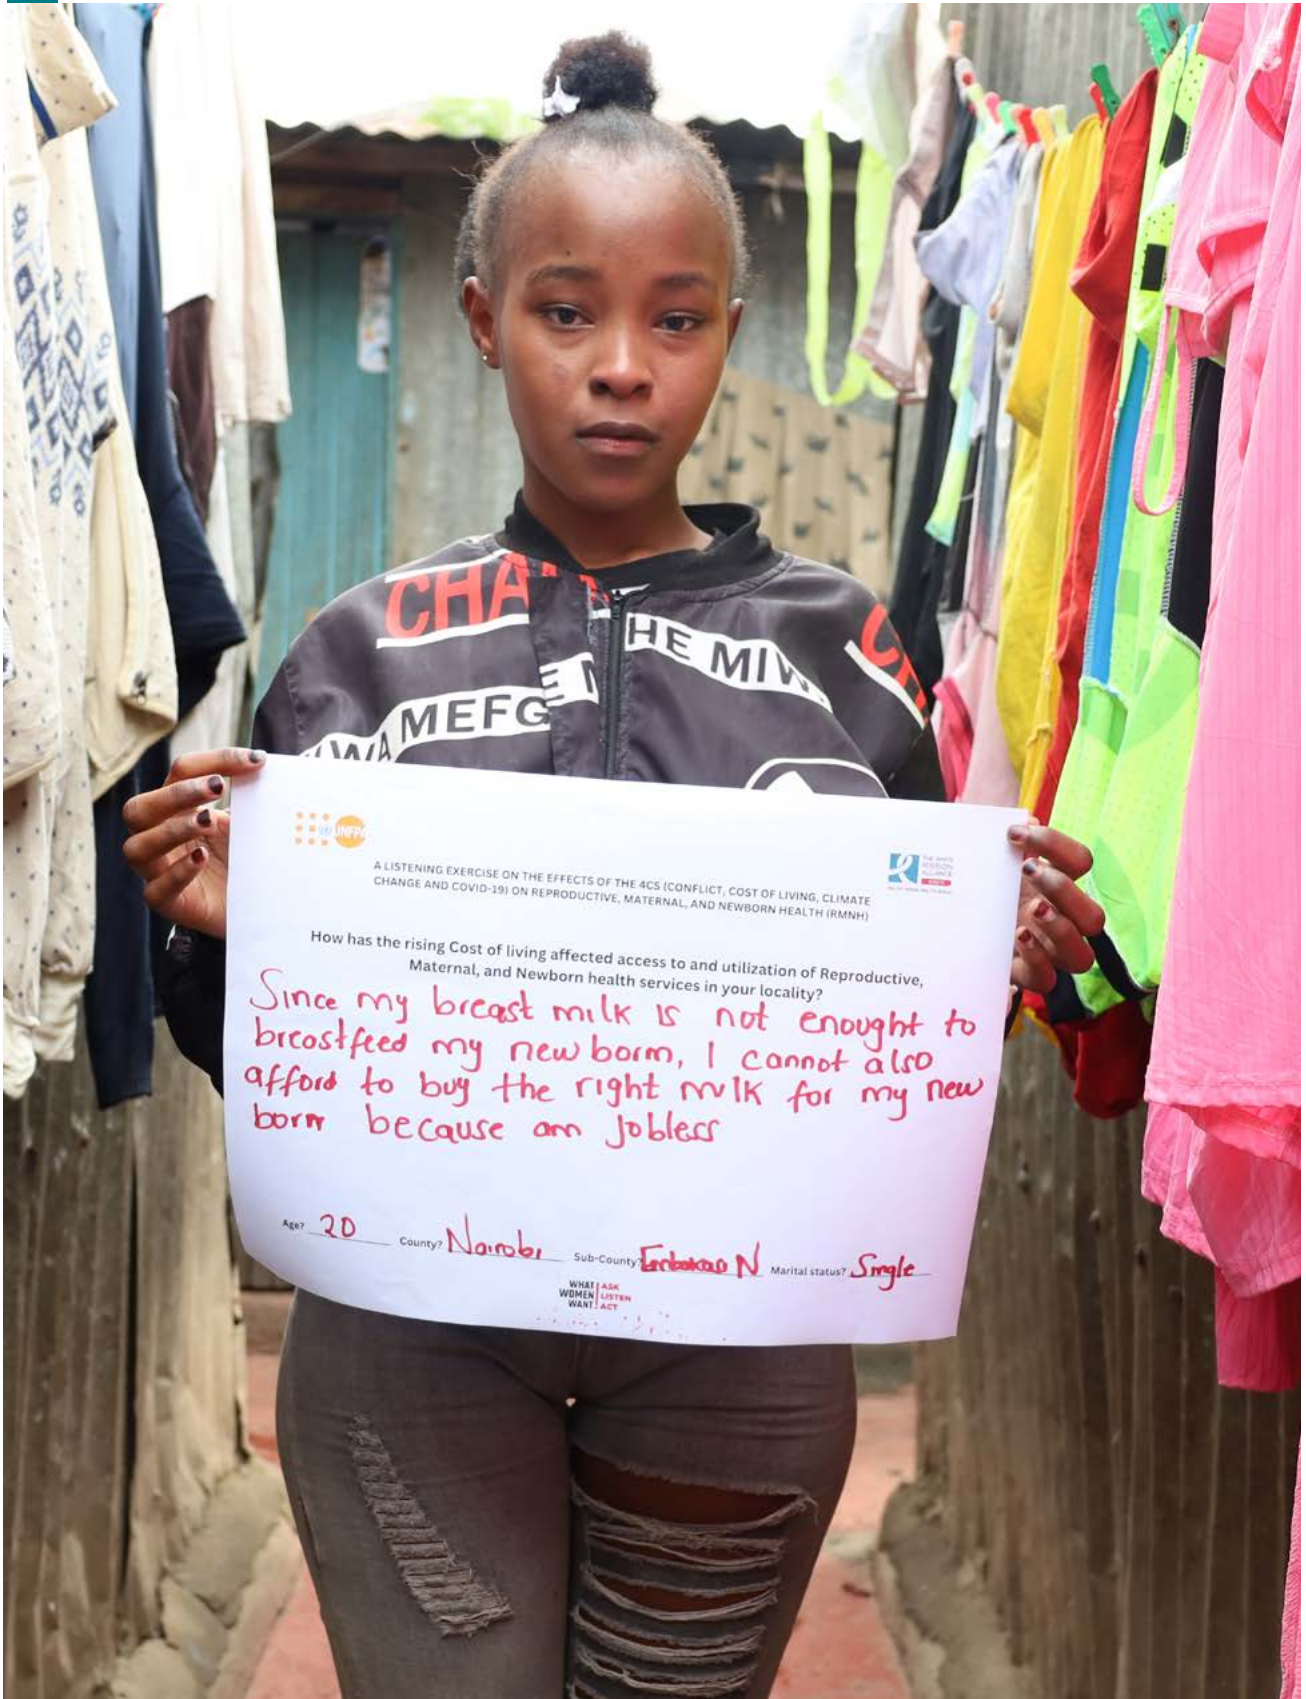 CHA
HE MIW
MEFG
E M
IWA
UNFPA
THE WHITE
RIBBON
ALLIANCE
A LISTENING EXERCISE ON THE EFFECTS OF THE 4CS (CONFLICT, COST OF LIVING, CLIMATE
CHANGE AND COVID-19) ON REPRODUCTIVE, MATERNAL, AND NEWBORN HEALTH (RMNH)
How has the rising Cost of living affected access to and utilization of Reproductive,
Maternal, and Newborn health services in your locality?
Since my breast milk is not enought to
breastfeed my new born, I cannot also
afford to buy the right milk for my new
born because am Jobless
Age? 20 County? Nairobi Sub-County? Embakasi N Marital status? Single
WHAT ASK
WOMEN LISTEN
WANT ACT